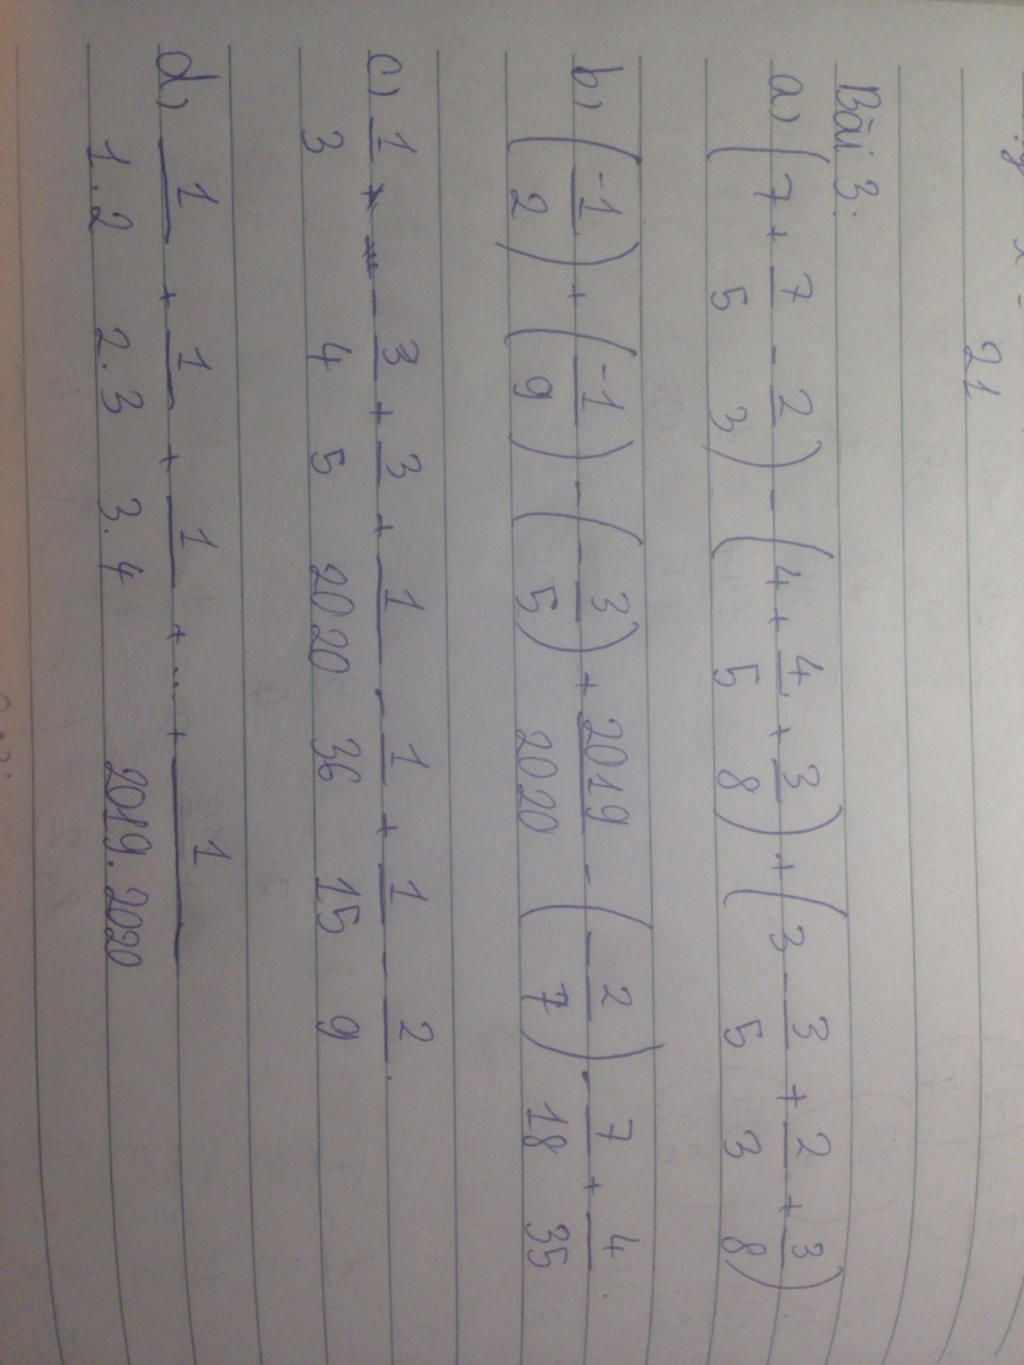 21
Bài 3.
a) (7 + 7/5 - 2/3) - (4 + 4/5 + 3/8) + (3 - 3/5 + 2/3 + 3/8).
b) (-1/2) + (-1/9) - (-3/5) + 2019/2020 - (-2/7) . 7/18 + 4/35.
c) 1/3 - 3/4 + 3/5 + 1/2020 - 1/36 + 1/15 - 2/9.
d) 1/1.2 + 1/2.3 + 1/3.4 + ... + 1/2019.2020